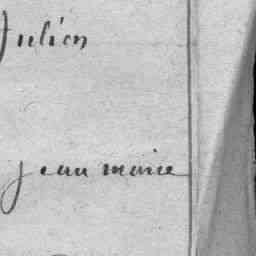 Julien
jean marie